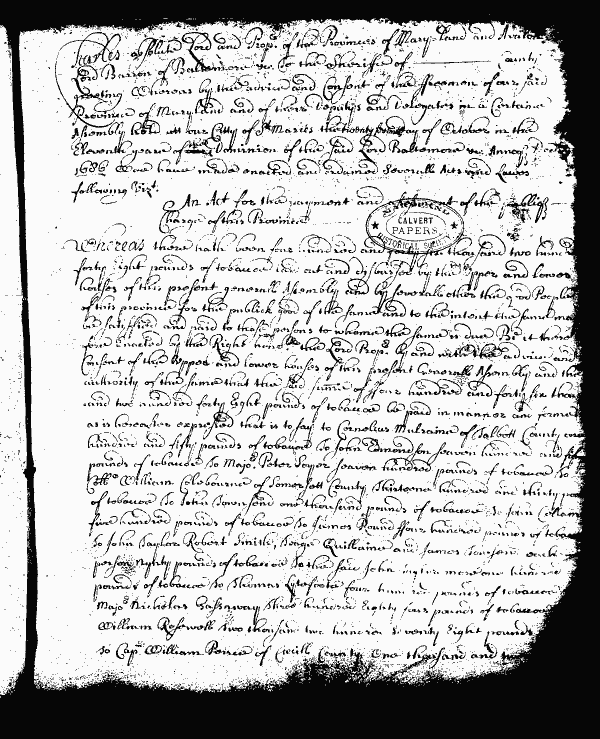 Charles absolute Lord and Prop.ʳ of the Provinces of Mary-Land and Avalon
Lord Barron of Baltemore &c. To the Sheriffe of County
greeting Whereas by the advice and Consent of the ffreemen of our said
Province of Maryland and of their Deputies and Delegates in a Certaine
Assembly held att our Citty of Sᵗ Maries the day of October in the
Eleventh yeare of Dominion of the said Lord Baltemore &c. Annoq
1686 Wee have made enacted and ordained severall Acts and Lawes
following Vizᵗ.
An Act for the payment and of the publiq
Charge of this Province
MARYLAND
CALVERT
PAPERS
HISTORICAL SOCIETY
Whereas there hath been four hundred and forty six thousand two hund
forty Eight pounds of tobacco laid out and by the upper and lower
houses of this present generall Assembly and by severall other the good People
of this province for the publick good of the same and to the intent the same may
be satisfied and paid to those persons to whome the same is due Be it there
fore Enacted by the Right honᵇˡᵉ the Lord Propʳ by and with the advice and
Consent of the upper and lower houses of this present Generall Assembly and the
authority of the same that the said summe of ffour hundred and forty six thou
and two hundred forty Eight pounds of tobacco be paid in manner and forme
as is hereafter expressed that is to say to Cornelius Mulraine of Talbott County one
hundred and fifty pounds of tobacco To John Edmondson seaven hundred and
pounds of tobacco To Majoʳ Peter Sayer seaven hundred pounds of tobacco To
William Colebourne of Somersett County thirteene hundred and thirty
of tobacco To John Townsend one thousand pounds of tobacco To John
five hundred pounds of tobacco To James Round ffour hundred pounds of tobac
To John Taylor Robert Smith, Quillaine and James each
person Ninty pounds of tobacco To the said John more one hundred
pounds of tobacco To Thomas four hundred pounds of tobacco
Majoʳ Nicholas Gassaway three hundred Eighty four pounds of tobacco
William Rosewell two thousand two hundred seventy Eight pounds
To Capᵗ William Peirce of Cecill County One thousand and